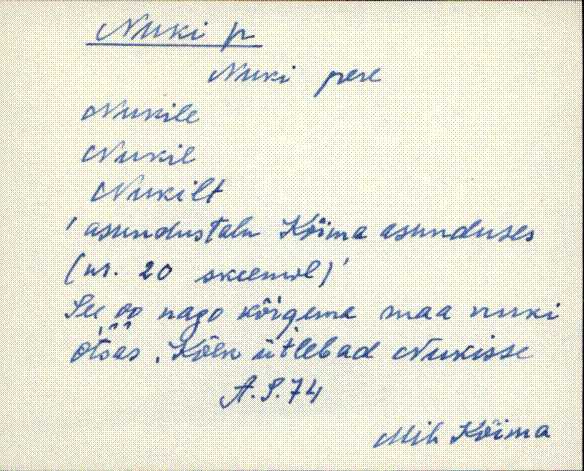 Nuki p
Nuki pere
Nukile
Nukil
Nukilt
'asundustalu Kõima asunduses
(nr. 20 skeemil)'
See oo nago kõrgema maa nuki
otsas. Kõik ütlebad Nukisse
A.S.74
Mih Kõima